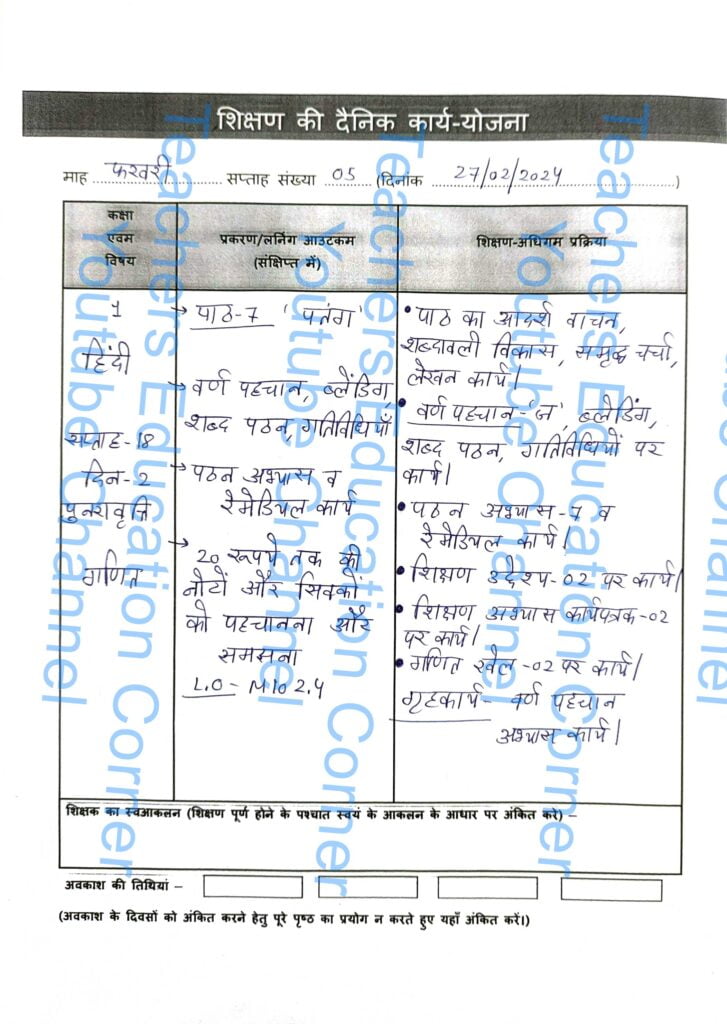 शिक्षण की दैनिक कार्य-योजना
माह फरवरी सप्ताह संख्या 05 (दिनांक 27/02/2024)
कक्षा
एवम
विषय
प्रकरण/लर्निंग आउटकम
(संक्षिप्त में)
शिक्षण-अधिगम प्रक्रिया
1
हिंदी
सप्ताह-18
दिन-2
पुनरावृत्ति
गणित
→ पाठ-7 'पतंग'
→ वर्ण पहचान, ब्लेंडिंग,
शब्द पठन, गतिविधियाँ
→ पठन अभ्यास व
रेमेडियल कार्य
→ 20 रूपये तक की
नोटों और सिक्कों
को पहचानना और
समझना
L.O - M102.4
• पाठ का आदर्श वाचन,
शब्दावली विकास, समृद्ध चर्चा,
लेखन कार्य।
• वर्ण पहचान-'ज', ब्लेंडिंग,
शब्द पठन, गतिविधियों पर
कार्य।
• पठन अभ्यास-7 व
रेमेडियल कार्य।
• शिक्षण उद्देश्य-02 पर कार्य।
• शिक्षण अभ्यास कार्यपत्रक-02
पर कार्य।
• गणित खेल-02 पर कार्य।
गृहकार्य- वर्ण पहचान
अभ्यास कार्य।
शिक्षक का स्वआकलन (शिक्षण पूर्ण होने के पश्चात स्वयं के आकलन के आधार पर अंकित करे) –
अवकाश की तिथियां –
(अवकाश के दिवसों को अंकित करने हेतु पूरे पृष्ठ का प्रयोग न करते हुए यहाँ अंकित करें।)
Teachers Education Corner
Youtube Channel
Teachers Education Corner
Youtube Channel
Teachers Education Corner
Youtube Channel